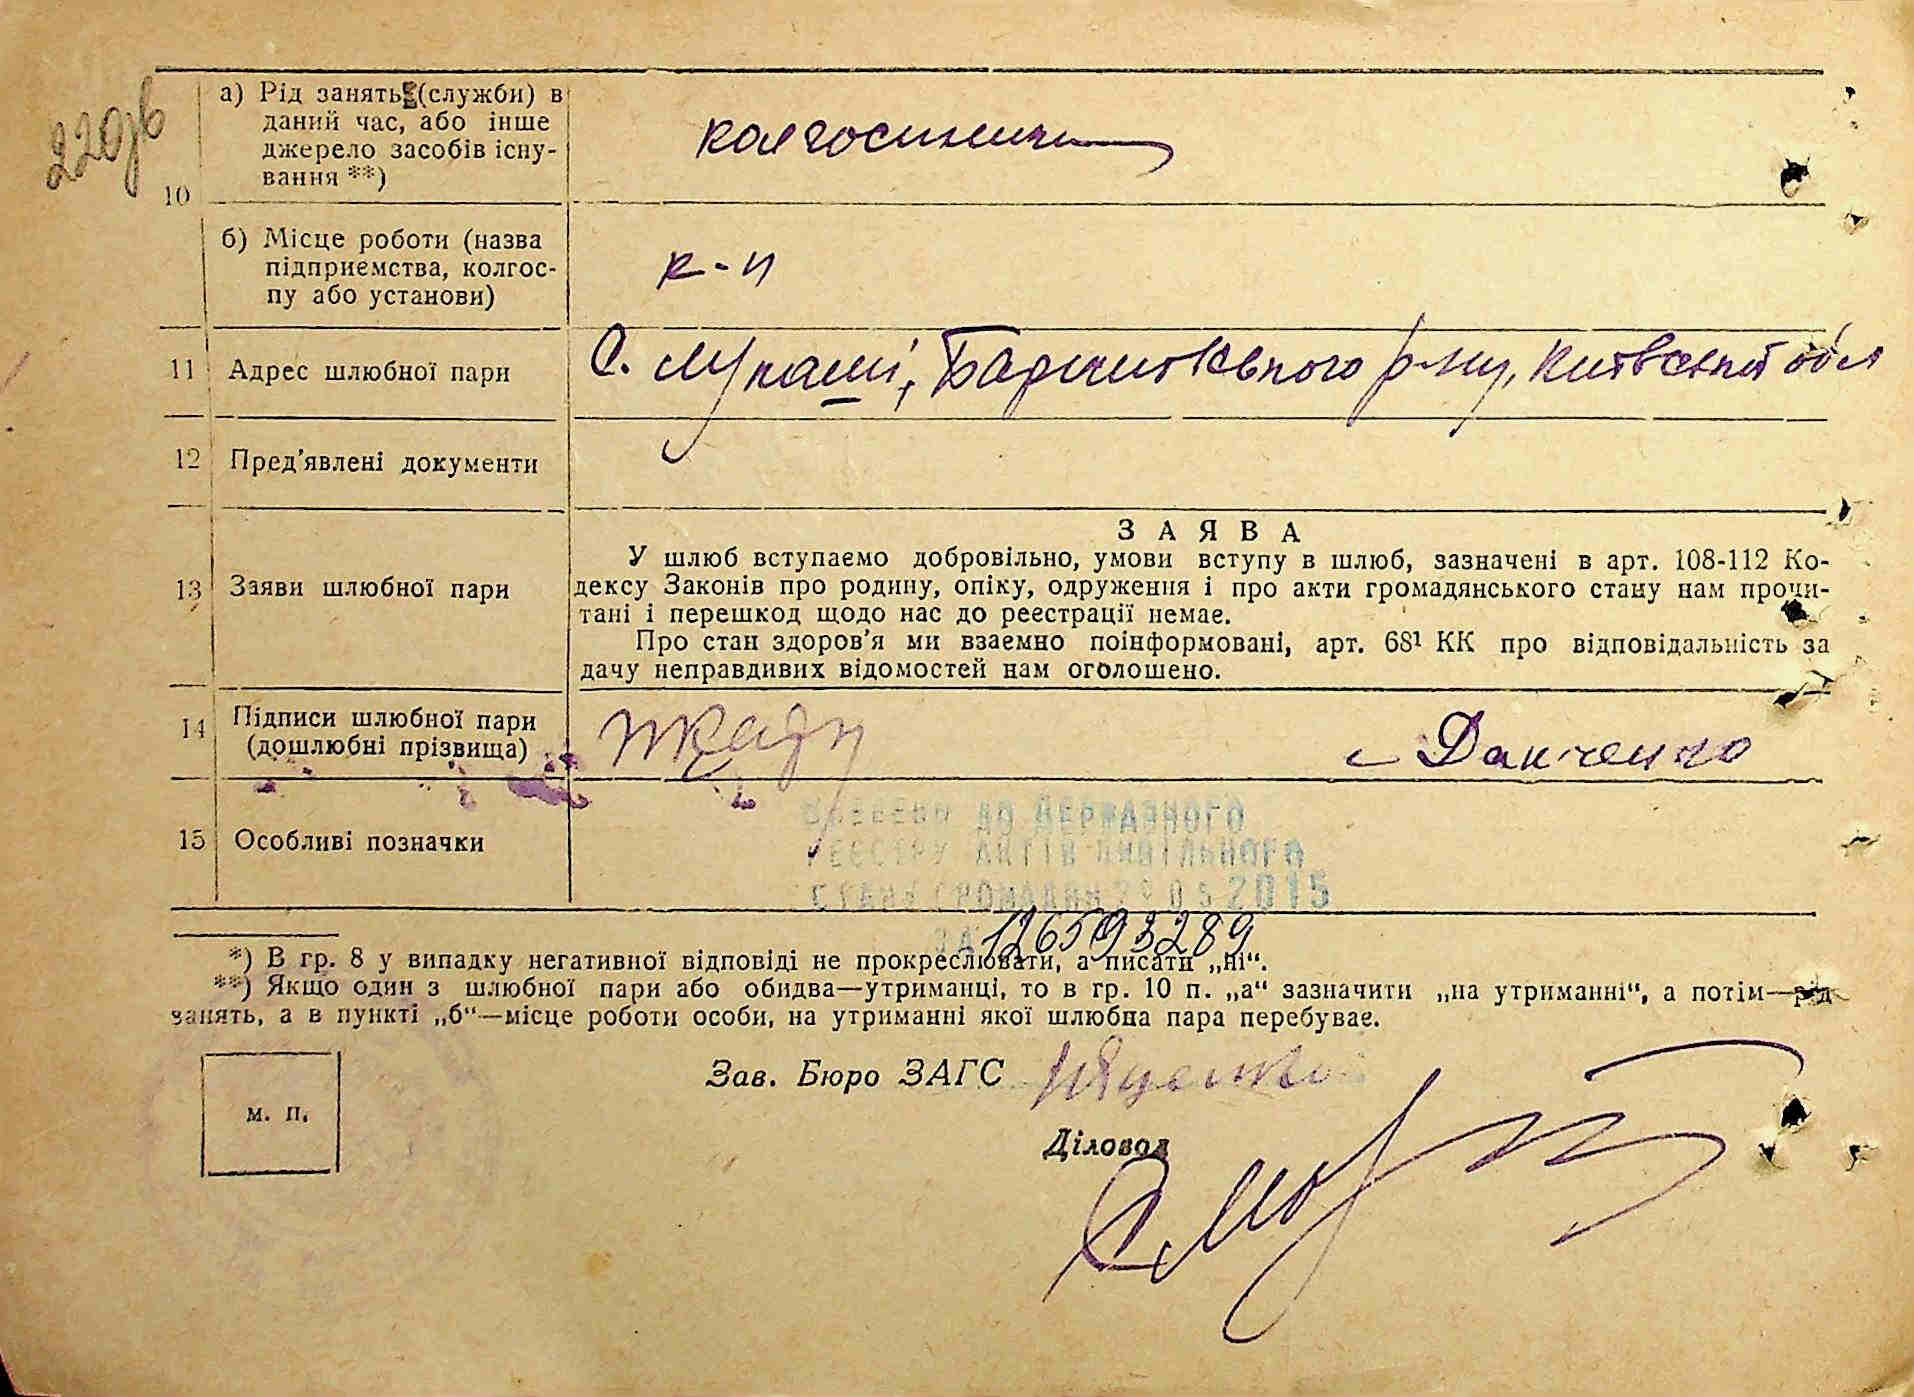 220зв
10
а) Рід занять (служби) в
даний час, або інше
джерело засобів існу-
вання **)
колгоспники
б) Місце роботи (назва
підприємства, колгос-
пу або установи)
к-п
11 Адрес шлюбної пари
С. Лукаші, р-ну, Київської обл
12 Пред'явлені документи
13 Заяви шлюбної пари
ЗАЯВА
У шлюб вступаємо добровільно, умови вступу в шлюб, зазначені в арт. 108-112 Ко-
дексу Законів про родину, опіку, одруження і про акти громадянського стану нам прочи-
тані і перешкод щодо нас до реєстрації немає.
Про стан здоров'я ми взаємно поінформовані, арт. 68¹ КК про відповідальність за
дачу неправдивих відомостей нам оголошено.
14 Підписи шлюбної пари
(дошлюбні прізвища)
Данченко
15 Особливі позначки
ВНЕСЕНО ДО ДЕРЖАВНОГО
РЕЄСТРУ АКТІВ ЦИВІЛЬНОГО
СТАНУ ГРОМАДЯН 29 05 2015
ЗА 126593289
*) В гр. 8 у випадку негативної відповіді не прокреслювати, а писати „ні“.
**) Якщо один з шлюбної пари або обидва—утриманці, то в гр. 10 п. „а“ зазначити „на утриманні“, а потім—рід
занять, а в пункті „б“—місце роботи особи, на утриманні якої шлюбна пара перебуває.
Зав. Бюро ЗАГС
м. п.
Діловод